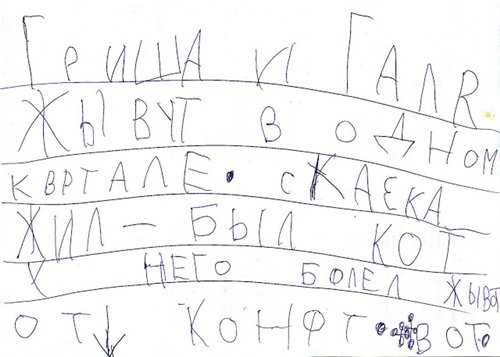 ГРИША И ГАЛЯ
ЖЫВУТ В ОДНОМ
КВРТАЛЕ. СКАЕКА
ЖИЛ - БЫЛ КОТ
У НЕГО БОЛЕЛ ЖЫВОТ
ОТ КОНФТ ВОТ.